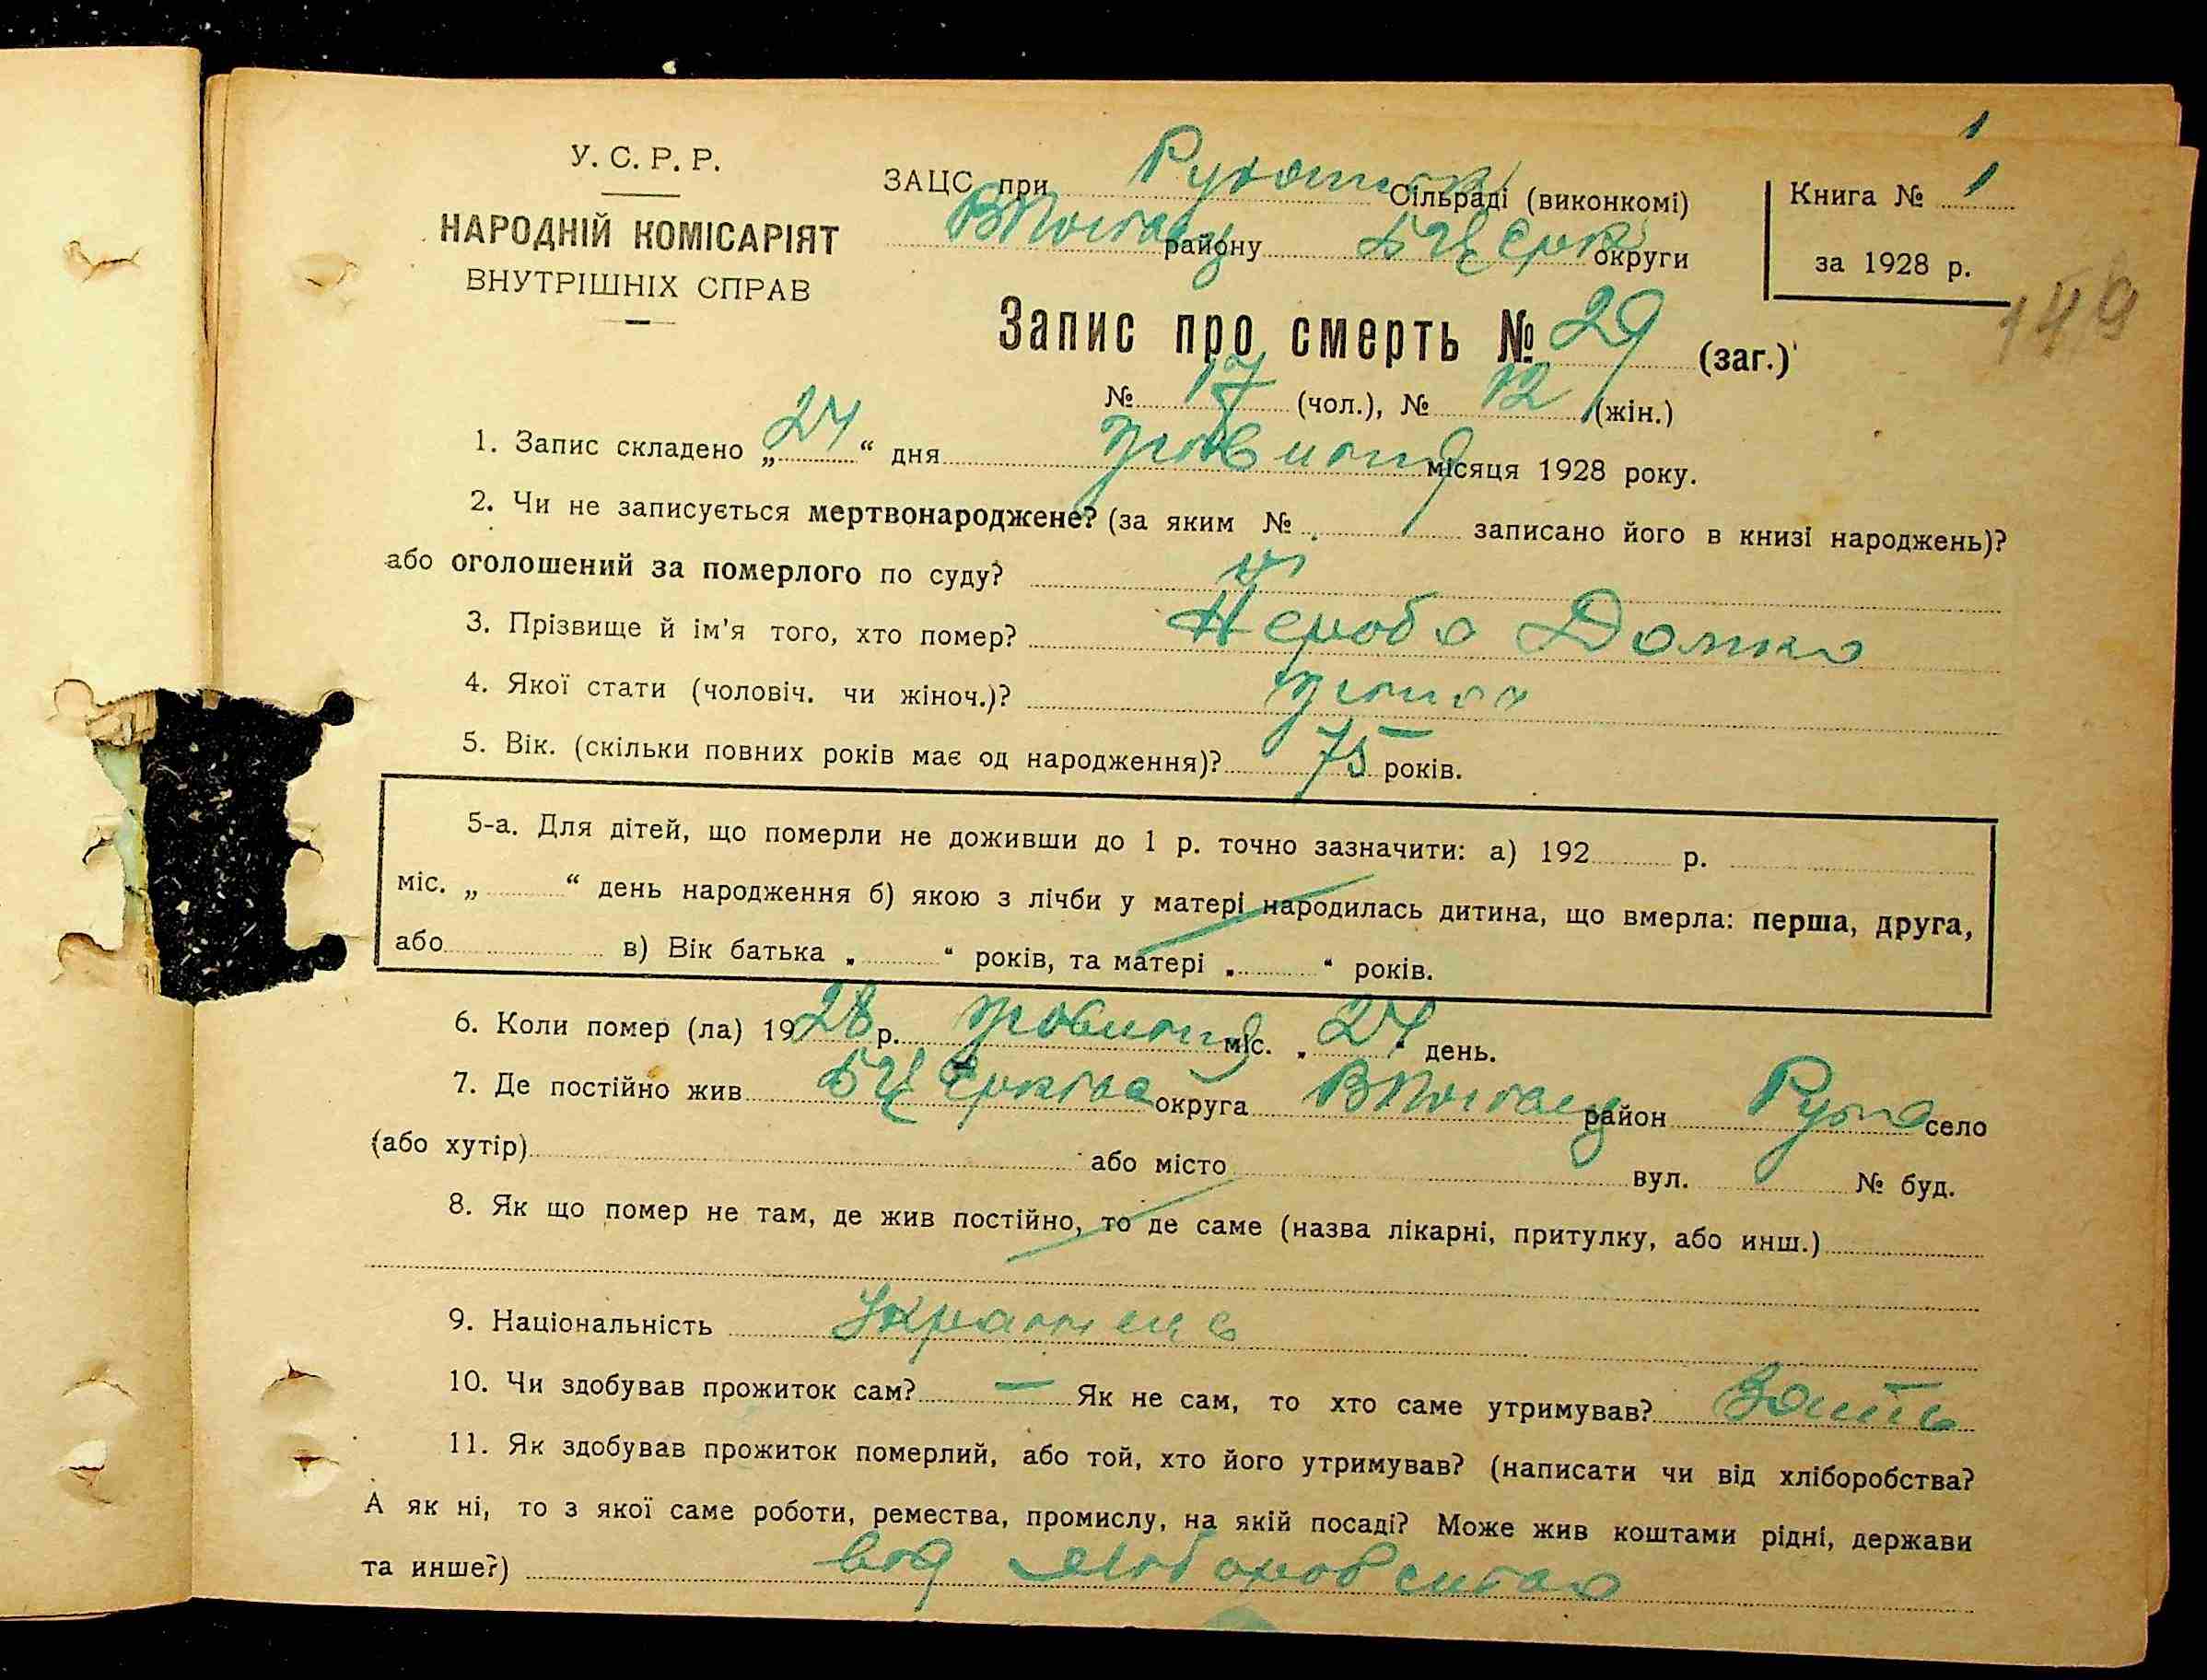 1
У. С. Р. Р.
НАРОДНІЙ КОМІСАРІЯТ
ВНУТРІШНІХ СПРАВ
ЗАЦС при Сільраді (виконкомі)
району БЦерк округи
Книга № 1
за 1928 р.
149
Запис про смерть № 29 (заг.)
№ 17 (чол.), № 12 (жін.)
1. Запис складено „24“ дня місяця 1928 року.
2. Чи не записується мертвонароджене? (за яким № записано його в книзі народжень)?
або оголошений за померлого по суду?
3. Прізвище й ім'я того, хто помер? Домка
4. Якої стати (чоловіч. чи жіноч.)? жіноч
5. Вік. (скільки повних років має од народження)? 75 років.
5-а. Для дітей, що померли не доживши до 1 р. точно зазначити: а) 192 р.
міс. „ “ день народження б) якою з лічби у матері народилась дитина, що вмерла: перша, друга,
або в) Вік батька „ “ років, та матері „ “ років.
6. Коли помер (ла) 1928 р. міс. „24“ день.
7. Де постійно жив округа район село
(або хутір) або місто вул. № буд.
8. Як що помер не там, де жив постійно, то де саме (назва лікарні, притулку, або инш.)
9. Національність
10. Чи здобував прожиток сам? — Як не сам, то хто саме утримував? Зять
11. Як здобував прожиток померлий, або той, хто його утримував? (написати чи від хліборобства?
А як ні, то з якої саме роботи, ремества, промислу, на якій посаді? Може жив коштами рідні, держави
та инше?) від